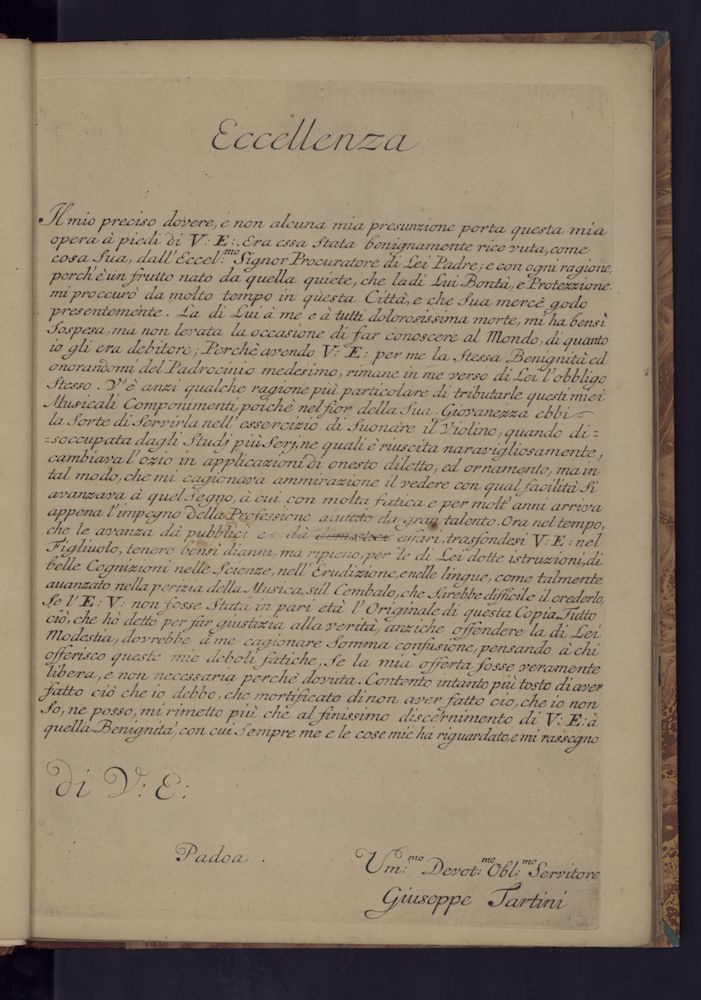 Eccellenza
Il mio preciso dovere, e non alcuna mia presunzione porta questa mia
opera à piedi di V: E:. Era essa stata benignamente ricevuta, come
cosa sua, dall' Eccel:mo Signor Procuratore di Lei Padre; e con ogni ragione,
perch'è un frutto nato da quella quiete, che la di Lui Bontà, e Protezzione
mi proccurò da molto tempo in questa Città, e che sua mercè godo
presentemente. La di Lui à me e à tutti dolorosissima morte, mi ha bensì
sospesa, ma non levata la occasione di far conoscere al Mondo, di quanto
io gli era debitore; Perchè avendo V: E: per me la stessa Benignità, ed
onorandomi del Padrocinio medesimo, rimane in me verso di Lei l'obbligo
stesso. V'è anzi qualche ragione più particolare di tributarle questi miei
Musicali Componimenti, poichè nel fior della sua Giovanezza ebbi
la sorte di servirla nell' essercizio di suonare il Violino, quando di=
=soccupata dagli Studj più serj, ne quali è riuscita naravigliosamente,
cambiava l'ozio in applicazioni di onesto diletto, ed ornamento, ma in
tal modo, che mi cagionava ammirazione il vedere con qual facilità si
avanzava à quel segno, à cui con molta fatica e per molt' anni arriva
appena l'impegno della Professione aiutato da gran talento. Ora nel tempo,
che le avanza dà pubblici e dà affari, trasfondesi V: E: nel
Figliuolo, tenero bensì d'anni, ma ripieno, per le di Lei dotte istruzioni, di
belle Cognizioni nelle Scienze, nell' Erudizione, e nelle lingue, come talmente
avanzato nella perizia della Musica, sul Cembalo, che sarebbe difficile il crederlo,
se l' E: V: non fosse stata in pari età l'Originale di questa Copia. Tutto
ciò, che hò detto per far giustizia alla verità, anziche offendere la di Lei
Modestia, dovrebbe à me cagionare somma confusione, pensando à chi
offerisco queste mie deboli fatiche, se la mia offerta fosse veramente
libera, e non necessaria perchè dovuta. Contento intanto più tosto di aver
fatto ciò che io debbo, che mortificato di non aver fatto ciò, che io non
so, ne posso, mi rimetto più che al finissimo discernimento di V: E: à
quella Benignità, con cui sempre me e le cose mie hà riguardato, e mi rassegno
di V: E:
Padoa.
Um:mo Devot:mo Obl:mo Servitore
Giuseppe Tartini